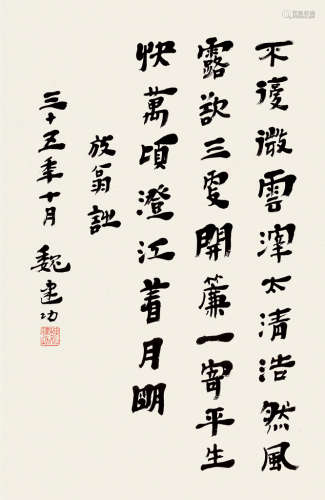 不復微雲滓太清浩然風
露欲三更開簾一寄平生
快萬頃澄江着月明
放翁詩
三十五年十月 魏建功